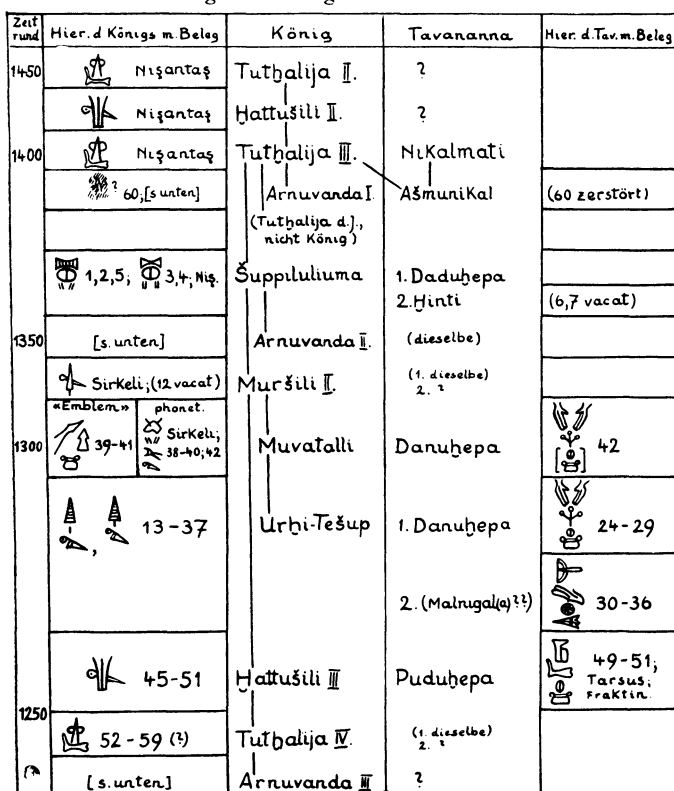 Zeit rund Hier. d Königs m. Beleg König Tavananna Hier. d. Tav. m. Beleg
1450 Nişantaş Tutḫalija II. ?
Nişantaş Ḫattušili II. ?
1400 Nişantaş Tutḫalija III. Nikalmati
? 60; [s unten] Arnuvanda I. Ašmunikal (60 zerstört)
(Tutḫalija d. J.,
nicht König)
1, 2, 5; 3, 4; Niş. Šuppiluliuma 1. Daduḫepa
2. Ḫinti (6, 7 vacat)
1350 [s. unten] Arnuvanda II. (dieselbe)
Sirkeli; (12 vacat) Muršili II. (1. dieselbe)
2. ?
«Emblem» phonet.
1300 39-41 Sirkeli; Muvatalli Danuḫepa 42
38-40; 42
13-37 Urḫi-Tešup 1. Danuḫepa 24-29
2. (Malnigal(a)??) 30-36
45-51 Ḫattušili III Puduḫepa 49-51;
Tarsus;
Fraktin.
1250
52-59 (?) Tutḫalija IV. (1. dieselbe)
2. ?
[s. unten] Arnuvanda III ?